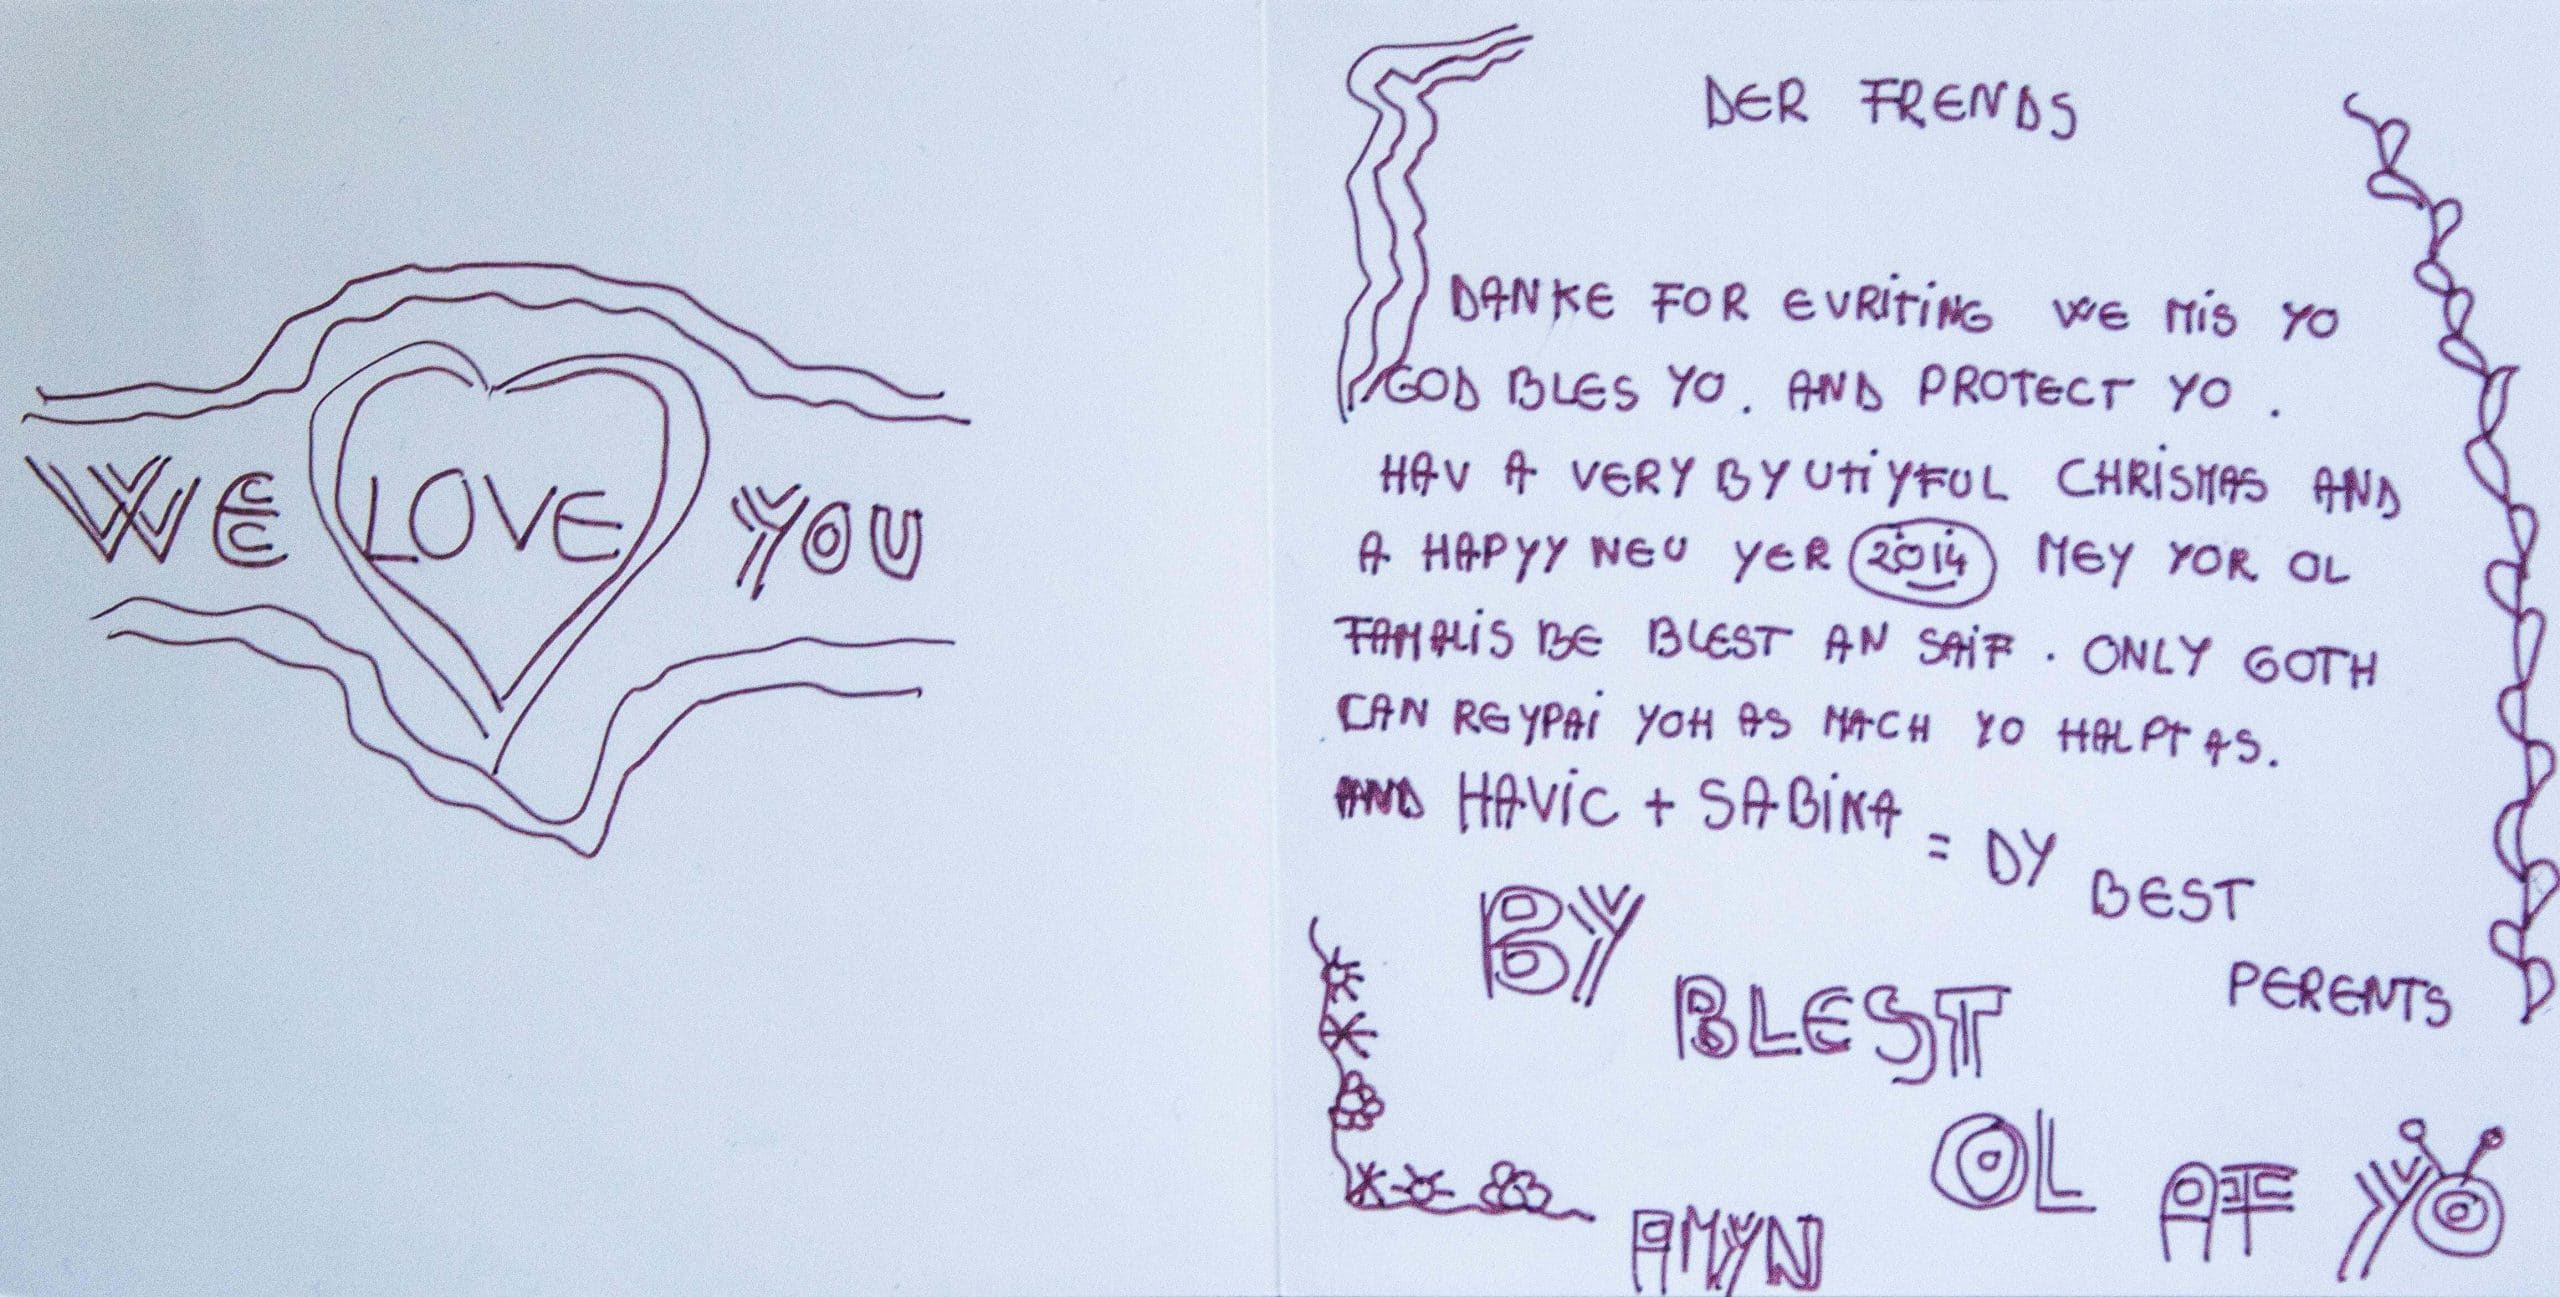 WE LOVE YOU
DER FRENDS
DANKE FOR EVRITING WE MIS YO
GOD BLES YO. AND PROTECT YO.
HAV A VERY BYUTIYFUL CHRISMAS AND
A HAPYY NEU YER 2014 MEY YOR OL
FAMALIS BE BLEST AN SAIF. ONLY GOTH
CAN REYPAI YOH AS MACH YO HALPT AS.
AND HAVIC + SABINA = DY BEST
PERENTS
BY
BLEST
OL AF YO
AMYN